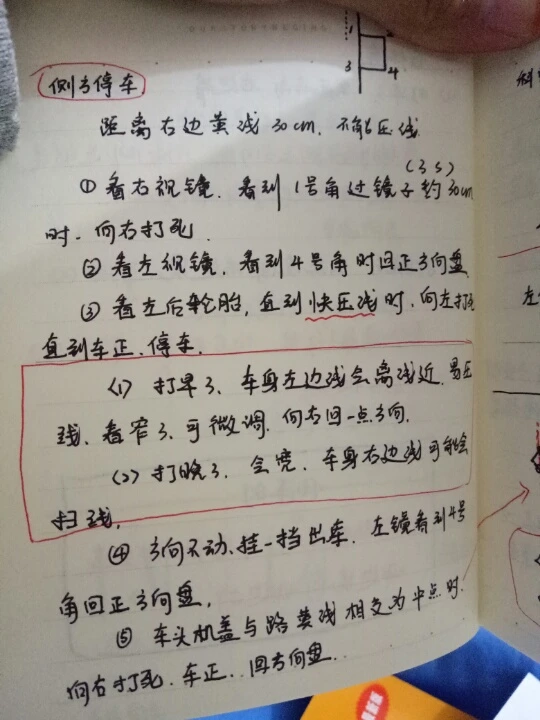 1 2
3 4
侧方停车
距离右边黄线30cm.不能压线
(3s)
① 看右视镜.看到1号角过镜子约30cm
时.向右打死.
② 看左视镜,看到4号角时回正方向盘
③ 看左后轮胎,直到快压线时.向左打死
直到车正.停车.
(1) 打早了、车身左边线会离线近.易压
线、看窄了、可微调.向右回一点方向.
(2) 打晚了、会宽、车身右边线可能会
扫线.
④ 方向不动、挂一挡出库.左镜看到4号
角回正方向盘,
⑤ 车头机盖与路黄线相交为中点时.
向右打死.车正..回方向盘.